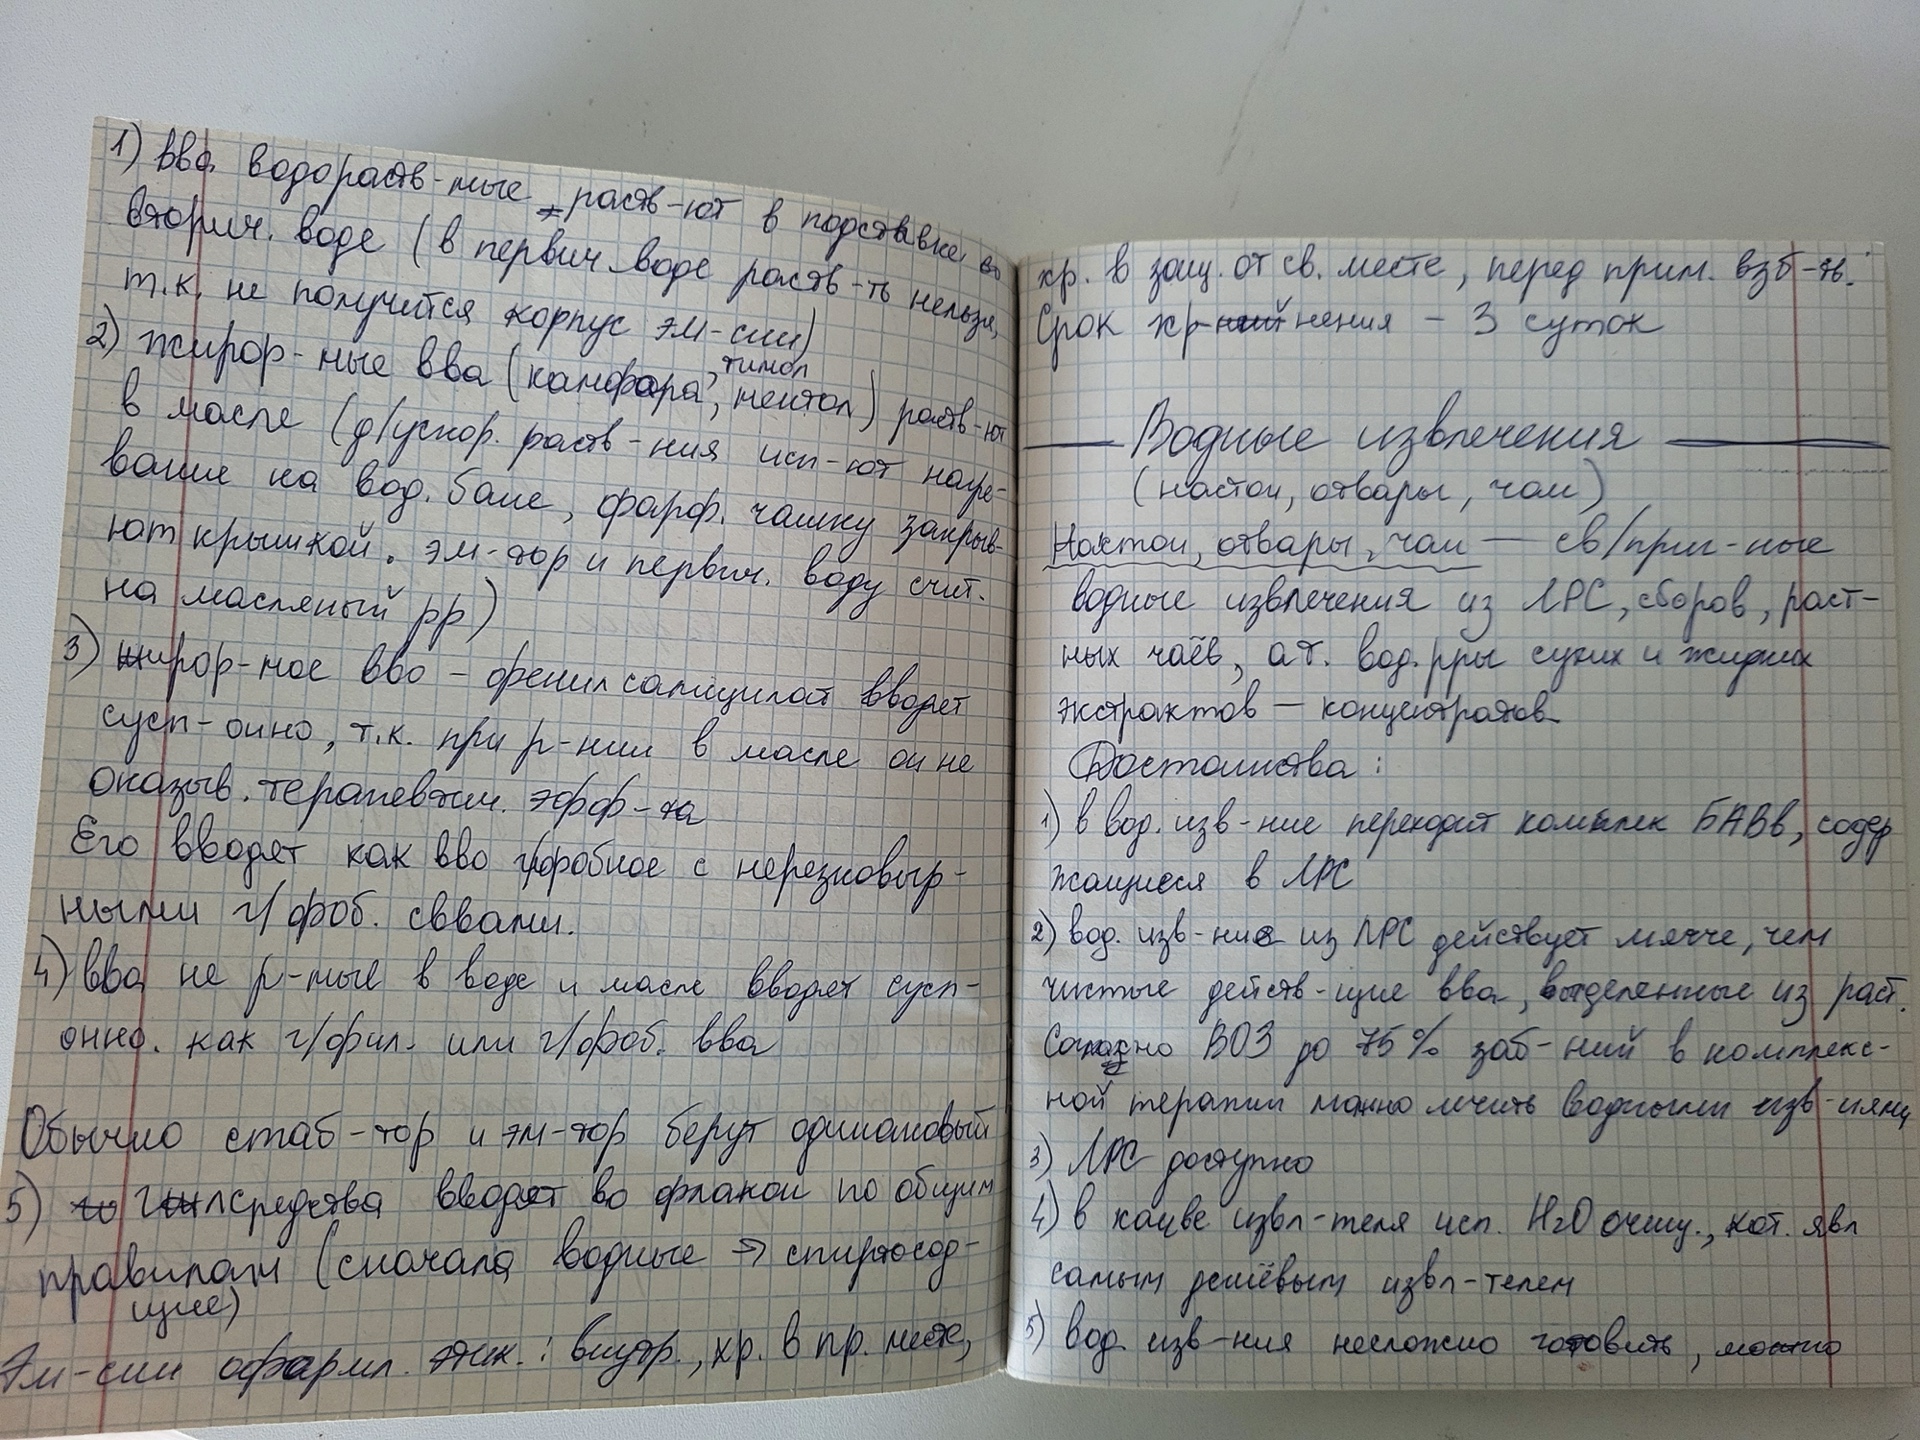 1) вва водораств-мые раств-ют в подставке во
вторич. воде (в первич воде раств-ть нельзя,
т.к. не получится корпус эм-сии)
2) жирор-ные вва (камфара, тимол, ментол) раств-ют
в масле (д/ускор. раств-ния исп-ют нагре-
вание на вод. бане, фарф. чашку закрыв-
ют крышкой. эм-тор и первич. воду счит.
на масляный рр)
3) жирор-ное вво – фенилсалицилат вводят
сусп-онно, т.к. при р-нии в масле он не
оказыв. терапевтич. эфф-та
Его вводят как вво г/фобное с нерезковыр-
ными г/фоб. сввами.
4) вва не р-мые в воде и масле вводят сусп-
онно. как г/фил. или г/фоб. вва
Обычно стаб-тор и эм-тор берут одинаковый
5) средства вводят во флакон по общим
правилам (сначала водные → спиртосод-
щие)
Эм-сии оформл. этик.: внутр., хр. в пр. месте,
хр. в защ. от св. месте, перед прим. взб-ть.
Срок хр-нения – 3 суток
Водные извлечения
(настои, отвары, чаи)
Настои, отвары, чаи — св/приг-ные
водные извлечения из ЛРС, сборов, раст-
ных чаёв, а т. вод. рры сухих и жидких
экстрактов – концентратов
Достоинства:
1) в вод. изв-ние переходит комплек БАВв, содер
жащиеся в ЛРС
2) вод. изв-ние из ЛРС действует мягче, чем
чистые действ-щие вва, выделенные из раст.
Согласно ВОЗ до 75% заб-ний в комплекс-
ной терапии можно лечить водными изв-иями
3) ЛРС доступно
4) в качве извл-теля исп. H2O очищ., кот. явл
самым дешёвым извл-телем
5) вод. изв-ния несложно готовить, можно